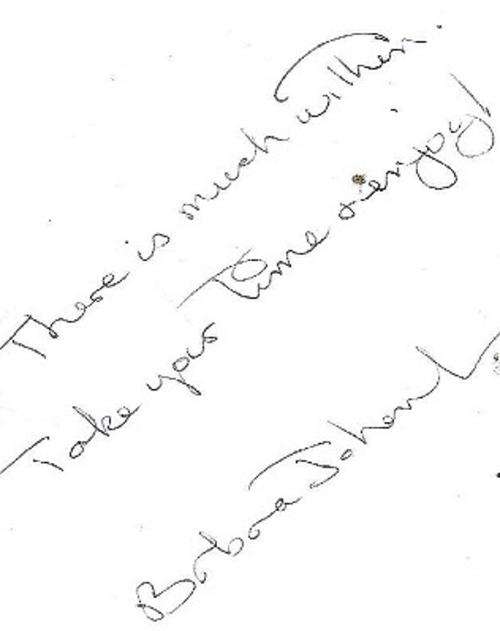 There is much within.
Take your time & enjoy!